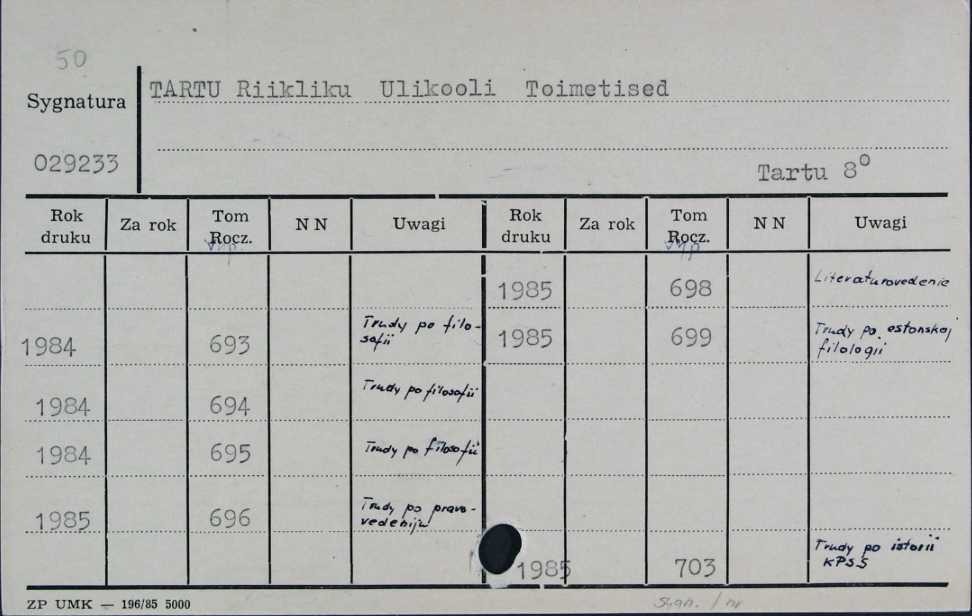 50
Sygnatura
TARTU Riikliku Ulikooli Toimetised
029233
Tartu 8°
Rok druku Za rok Tom Rocz. N N Uwagi Rok druku Za rok Tom Rocz. N N Uwagi
vyp. vyp.
1985 698 Literaturovedenie
1984 693 Trudy po filo-
sofii
1985 699 Trudy po estonskoj
filologii
1984 694 Trudy po filosofii
1984 695 Trudy po filosofii
1985 696 Trudy po pravo-
vedeniju
1985 703 Trudy po istorii
KPSS
ZP UMK — 196/85 5000